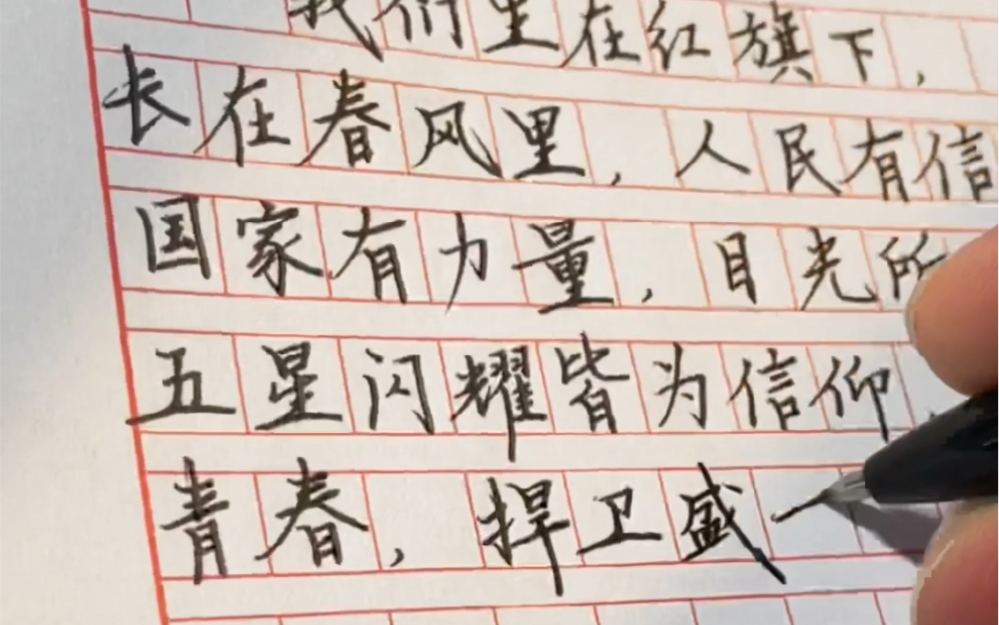 我们生在红旗下，
长在春风里，人民有信
国家有力量，目光所
五星闪耀皆为信仰
青春，捍卫盛